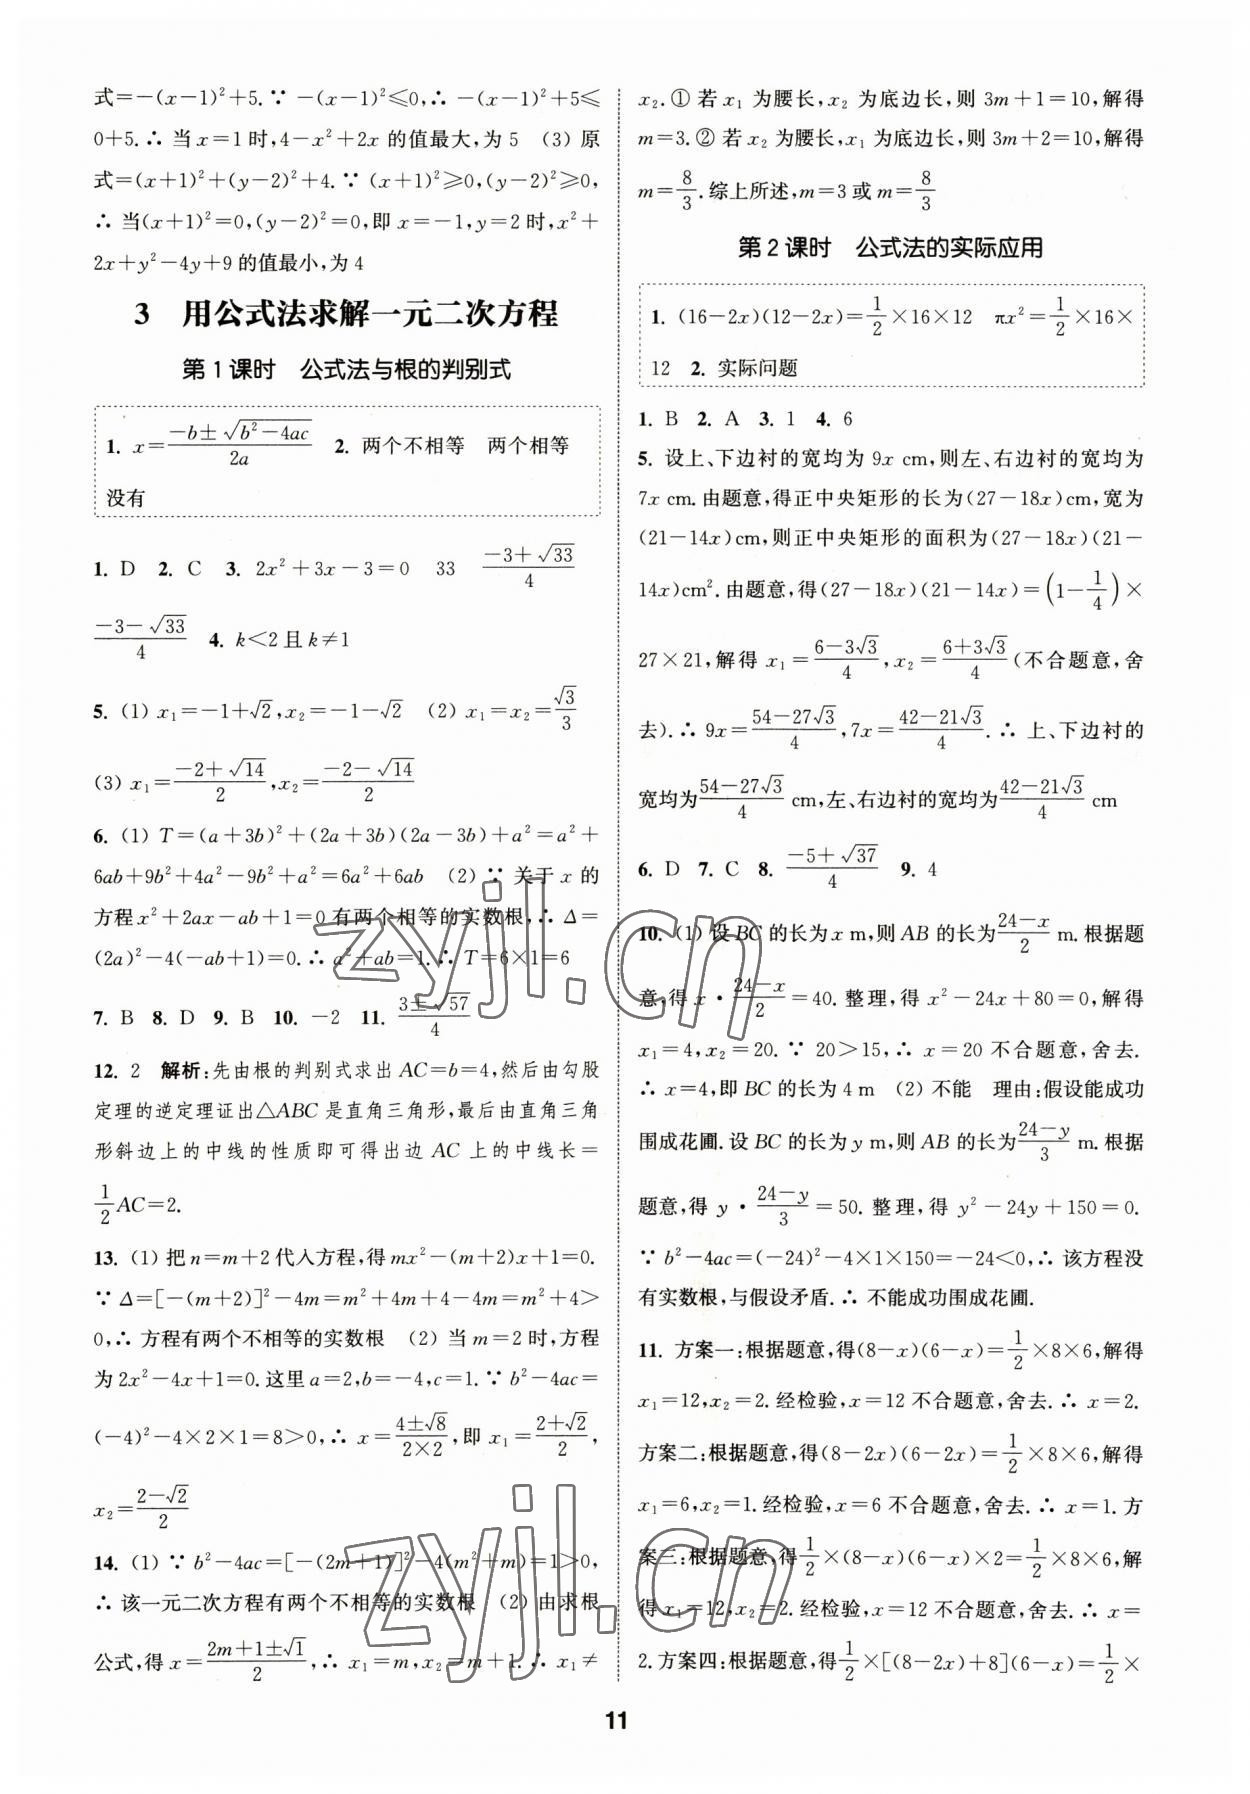 式=-(x-1)²+5.∵ -(x-1)²≤0,∴ -(x-1)²+5≤
0+5.∴ 当 x=1 时,4-x²+2x 的值最大,为 5 (3) 原
式=(x+1)²+(y-2)²+4.∵ (x+1)²≥0,(y-2)²≥0,
∴ 当(x+1)²=0,(y-2)²=0,即 x=-1,y=2 时,x²+
2x+y²-4y+9 的值最小,为 4
3 用公式法求解一元二次方程
第 1 课时 公式法与根的判别式
1. x=\frac{-b±\sqrt{b²-4ac}}{2a} 2. 两个不相等 两个相等
没有
1. D 2. C 3. 2x²+3x-3=0 33 \frac{-3+\sqrt{33}}{4}
\frac{-3-\sqrt{33}}{4} 4. k<2 且 k≠1
5. (1) x₁=-1+√2,x₂=-1-√2 (2) x₁=x₂=\frac{\sqrt{3}}{3}
(3) x₁=\frac{-2+\sqrt{14}}{2},x₂=\frac{-2-\sqrt{14}}{2}
6. (1) T=(a+3b)²+(2a+3b)(2a-3b)+a²=a²+
6ab+9b²+4a²-9b²+a²=6a²+6ab (2) ∵ 关于 x 的
方程 x²+2ax-ab+1=0 有两个相等的实数根,∴ Δ=
(2a)²-4(-ab+1)=0.∴ a²+ab=1.∴ T=6×1=6
7. B 8. D 9. B 10. -2 11. \frac{3±\sqrt{57}}{4}
12. 2 解析:先由根的判别式求出 AC=b=4,然后由勾股
定理的逆定理证出△ABC 是直角三角形,最后由直角三角
形斜边上的中线的性质即可得出边 AC 上的中线长=
\frac{1}{2}AC=2.
13. (1) 把 n=m+2 代入方程,得 mx²-(m+2)x+1=0.
∵ Δ=[-(m+2)]²-4m=m²+4m+4-4m=m²+4>
0,∴ 方程有两个不相等的实数根 (2) 当 m=2 时,方程
为 2x²-4x+1=0.这里 a=2,b=-4,c=1.∵ b²-4ac=
(-4)²-4×2×1=8>0,∴ x=\frac{4±\sqrt{8}}{2×2},即 x₁=\frac{2+\sqrt{2}}{2},
x₂=\frac{2-\sqrt{2}}{2}
14. (1) ∵ b²-4ac=[-(2m+1)]²-4(m²+m)=1>0,
∴ 该一元二次方程有两个不相等的实数根 (2) 由求根
公式,得 x=\frac{2m+1±\sqrt{1}}{2},∴ x₁=m,x₂=m+1.∴ x₁≠
x₂.① 若 x₁ 为腰长,x₂ 为底边长,则 3m+1=10,解得
m=3.② 若 x₂ 为腰长,x₁ 为底边长,则 3m+2=10,解得
m=\frac{8}{3}.综上所述,m=3 或 m=\frac{8}{3}
第 2 课时 公式法的实际应用
1. (16-2x)(12-2x)=\frac{1}{2}×16×12 πx²=\frac{1}{2}×16×
12 2. 实际问题
1. B 2. A 3. 1 4. 6
5. 设上、下边衬的宽均为 9x cm,则左、右边衬的宽均为
7x cm.由题意,得正中央矩形的长为(27-18x)cm,宽为
(21-14x)cm,则正中央矩形的面积为(27-18x)(21-
14x)cm².由题意,得(27-18x)(21-14x)=(1-\frac{1}{4})×
27×21,解得 x₁=\frac{6-3\sqrt{3}}{4},x₂=\frac{6+3\sqrt{3}}{4}(不合题意,舍
去).∴ 9x=\frac{54-27\sqrt{3}}{4},7x=\frac{42-21\sqrt{3}}{4}.∴ 上、下边衬的
宽均为\frac{54-27\sqrt{3}}{4} cm,左、右边衬的宽均为\frac{42-21\sqrt{3}}{4} cm
6. D 7. C 8. \frac{-5+\sqrt{37}}{4} 9. 4
10. (1) 设 BC 的长为 x m,则 AB 的长为\frac{24-x}{2} m.根据题
意,得 x·\frac{24-x}{2}=40.整理,得 x²-24x+80=0,解得
x₁=4,x₂=20.∵ 20>15,∴ x=20 不合题意,舍去.
∴ x=4,即 BC 的长为 4 m (2) 不能 理由:假设能成功
围成花圃.设 BC 的长为 y m,则 AB 的长为\frac{24-y}{3} m.根据
题意,得 y·\frac{24-y}{3}=50.整理,得 y²-24y+150=0.
∵ b²-4ac=(-24)²-4×1×150=-24<0,∴ 该方程没
有实数根,与假设矛盾.∴ 不能成功围成花圃.
11. 方案一:根据题意,得(8-x)(6-x)=\frac{1}{2}×8×6,解得
x₁=12,x₂=2.经检验,x=12 不合题意,舍去.∴ x=2.
方案二:根据题意,得(8-2x)(6-2x)=\frac{1}{2}×8×6,解得
x₁=6,x₂=1.经检验,x=6 不合题意,舍去.∴ x=1.方
案三:根据题意,得\frac{1}{2}×(8-x)(6-x)×2=\frac{1}{2}×8×6,解
得 x₁=12,x₂=2.经检验,x=12 不合题意,舍去.∴ x=
2.方案四:根据题意,得\frac{1}{2}×[(8-2x)+8](6-x)=\frac{1}{2}×
11
zyjl.cn
zyjl.cn